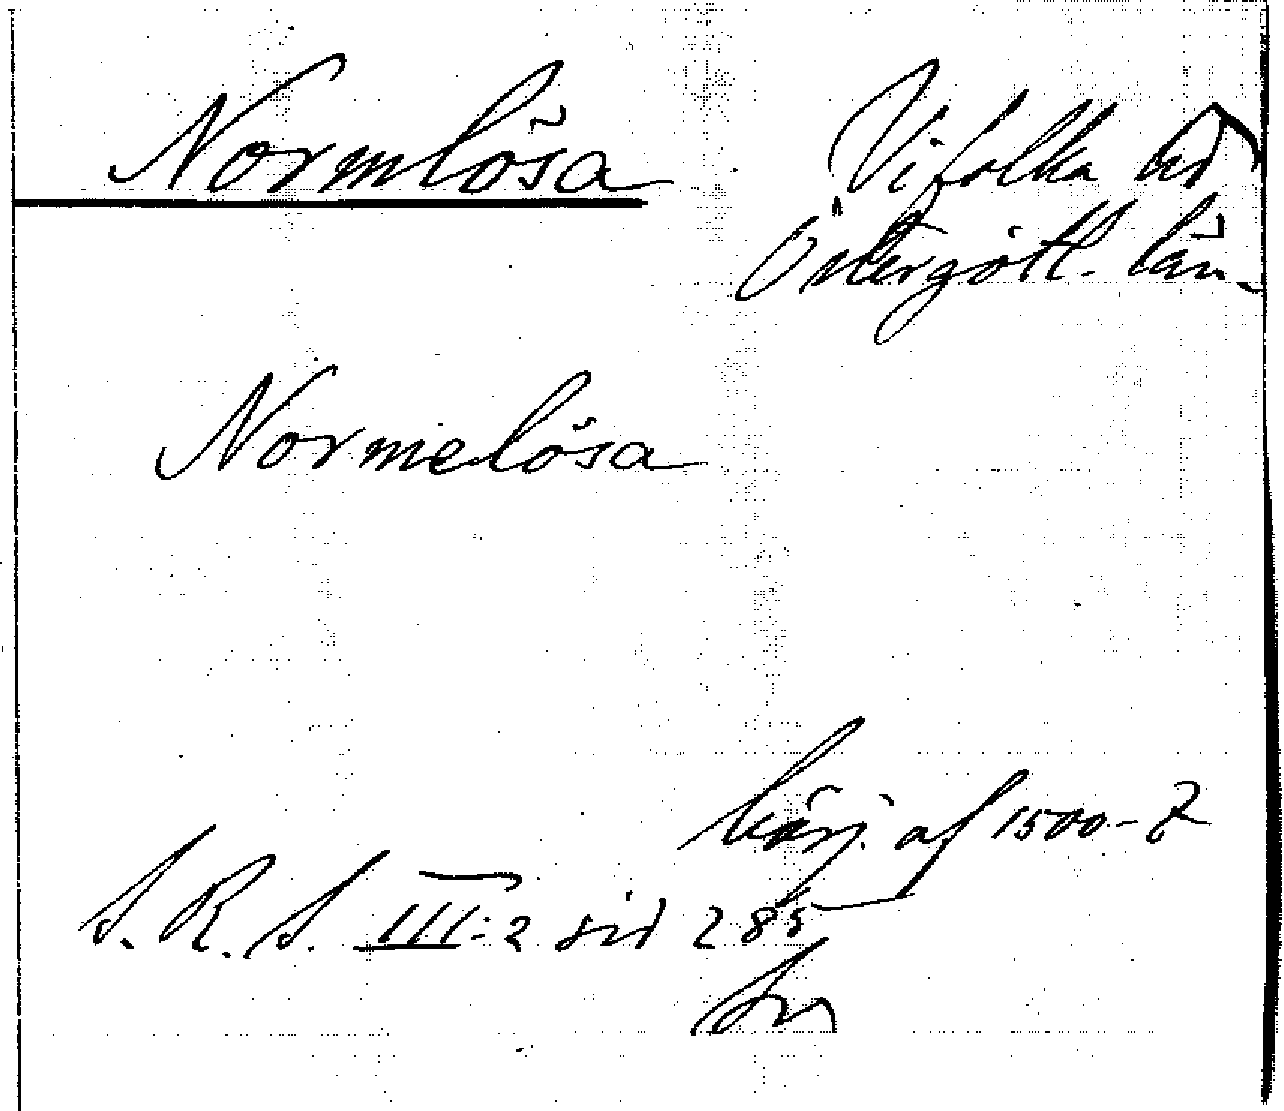 Normlösa
Vifolka hd
Östergötl. län
Normelösa
börj. af 1500-t
S. R. S. III:2 sid 285